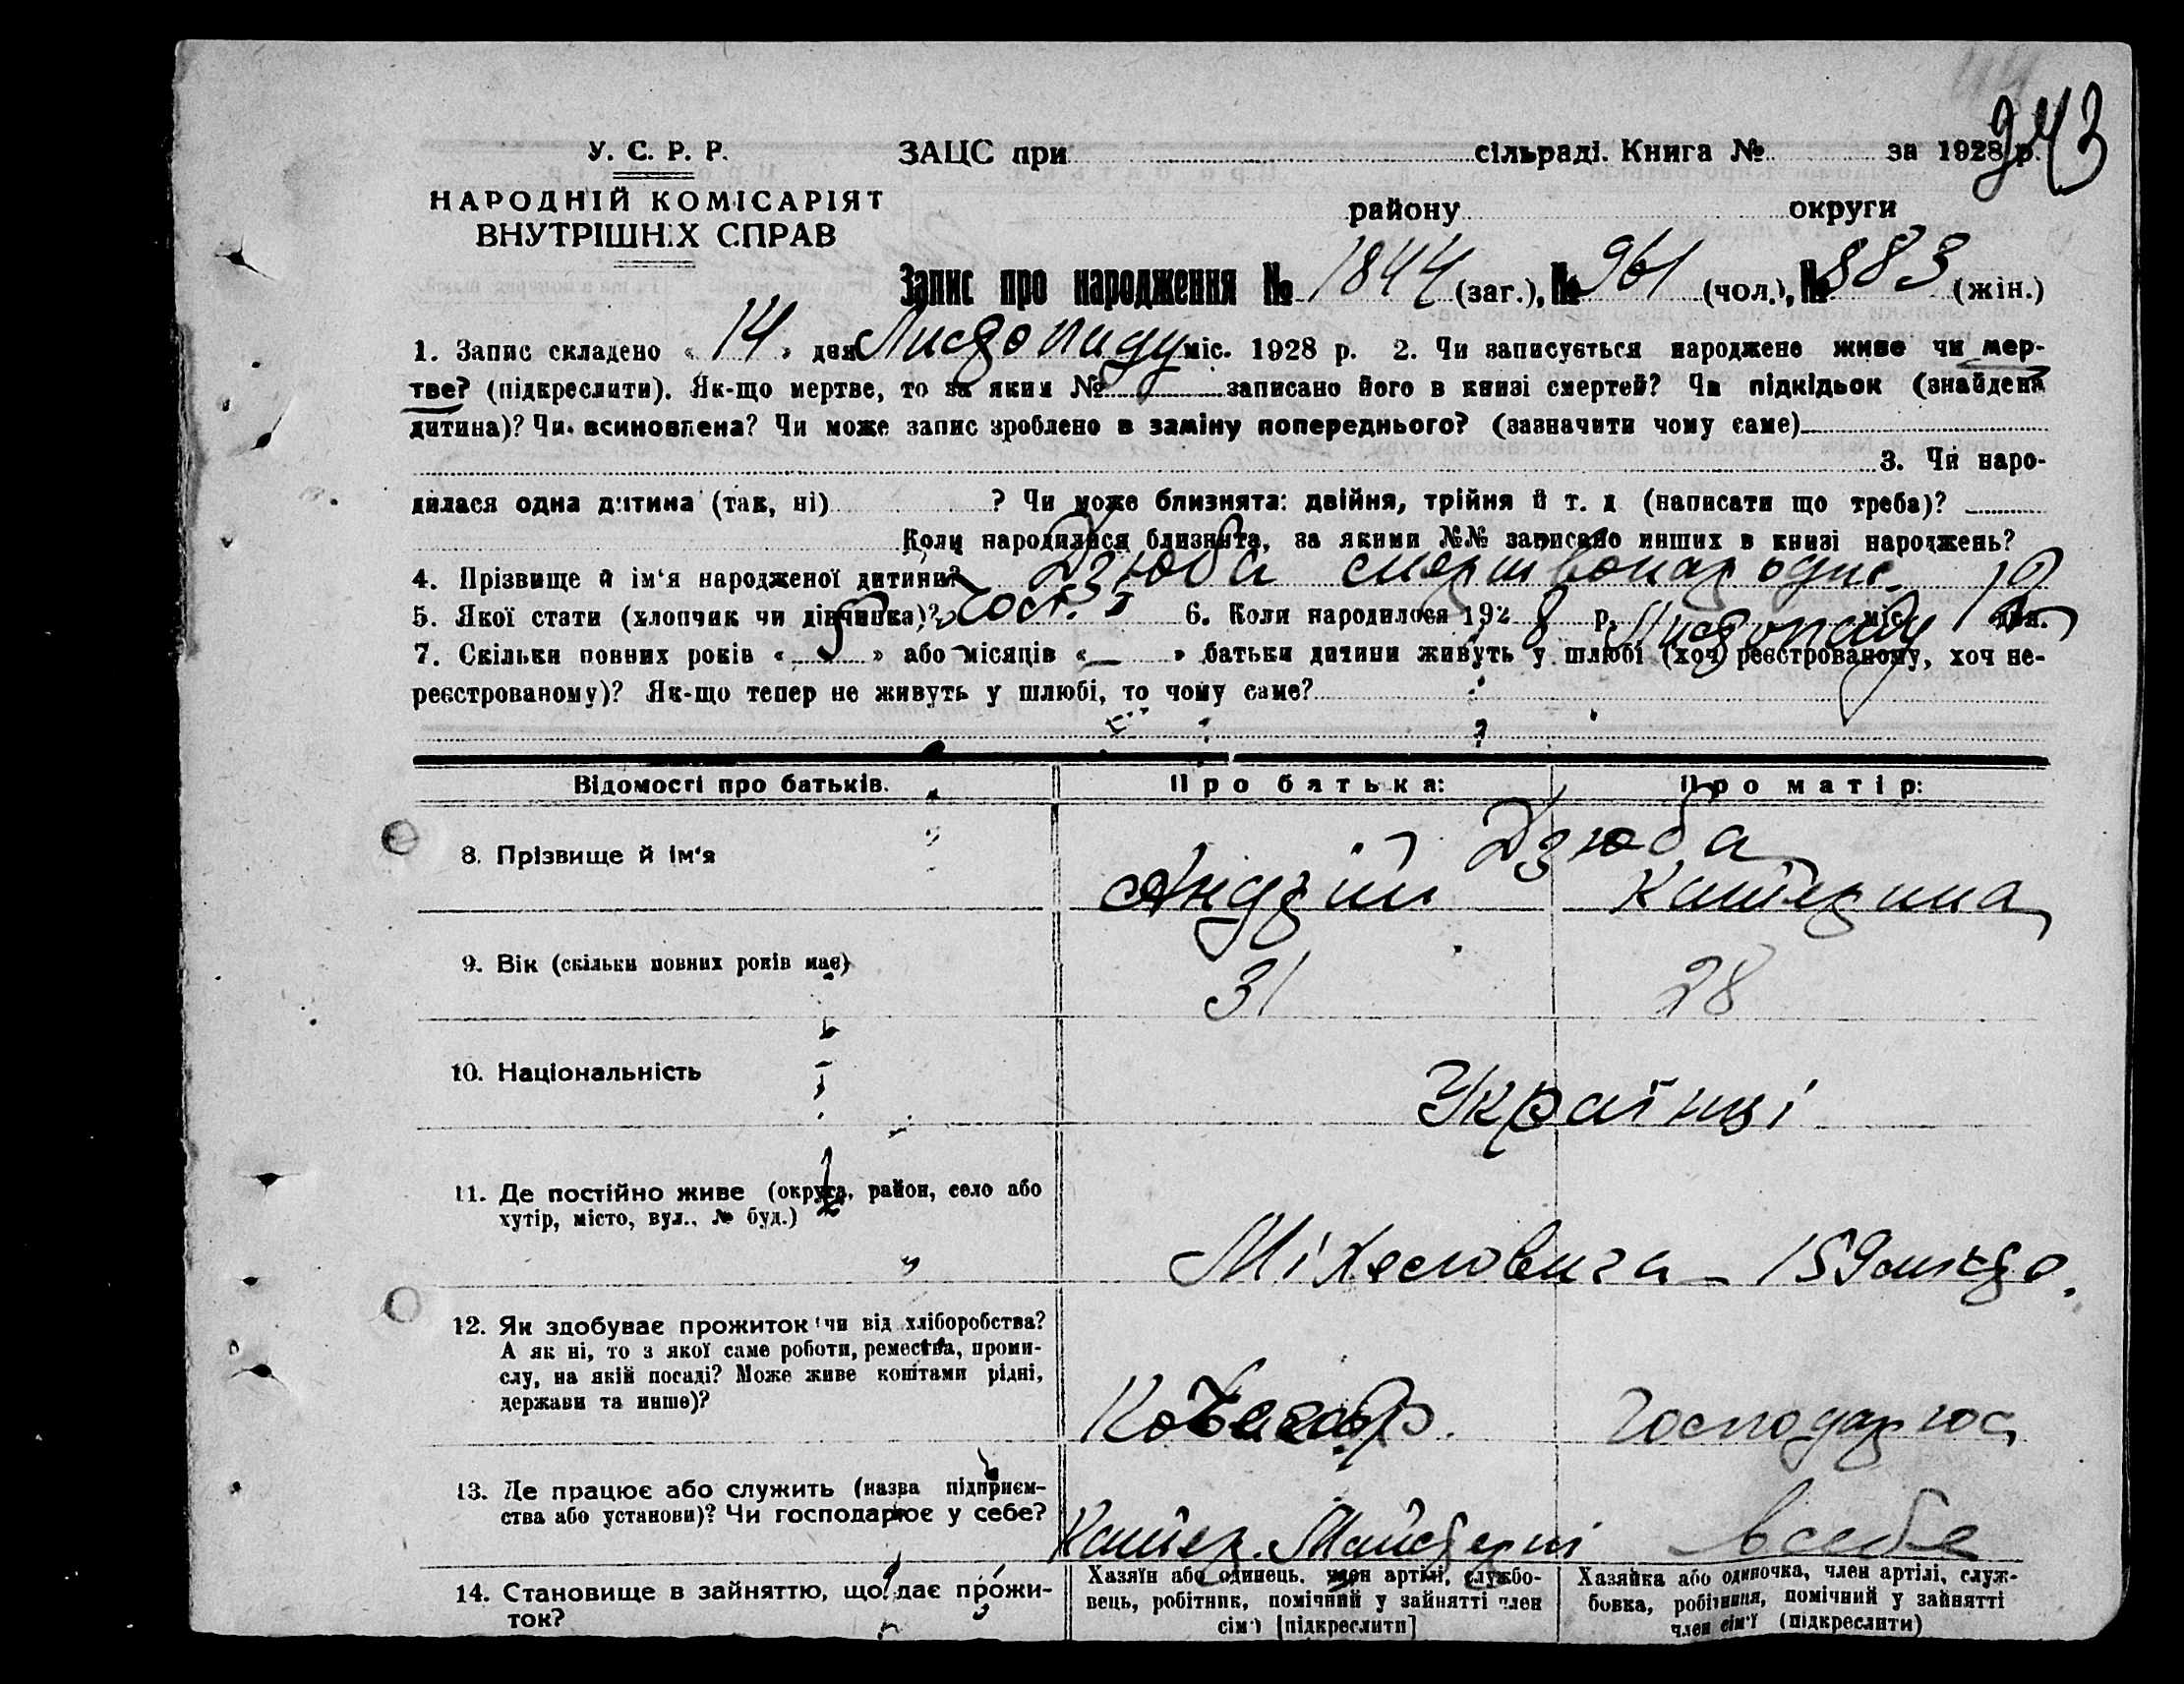 943
У. С. Р. Р.
НАРОДНІЙ КОМІСАРІЯТ
ВНУТРІШНІХ СПРАВ
ЗАЦС при сільраді. Книга № за 1928 р.
району округи
Запис про народження № 1844 (заг.), № 961 (чол.), № 883 (жін.)
1. Запис складено « 14 » дня Листопаду міс. 1928 р. 2. Чи записується народжене живе чи мер-
тве? (підкреслити). Як-що мертве, то за яким № записано його в книзі смертей? Чи підкідьок (знайдена
дитина)? Чи всиновлена? Чи може запис зроблено в заміну попереднього? (зазначити чому саме)
3. Чи наро-
дилася одна дитина (так, ні) ? Чи може близнята: двійня, трійня й т. д (написати що треба)?
Коли народилися близнята, за якими №№ записано инших в книзі народжень?
4. Прізвище й ім‘я народженої дитини? Дзюба мертвонародж.
5. Якої стати (хлопчик чи дівчинка)? 6. Коли народилося 1928 р. Листопаду міс. дня.
7. Скільки повних років « 5 » або місяців « — » батьки дитини живуть у шлюбі (хоч реєстрованому, хоч не-
реєстрованому)? Як-що тепер не живуть у шлюбі, то чому саме?
Відомості про батьків. Про батька: Про матір:
Дзюба
8. Прізвище й ім‘я Андрій Катерина
9. Вік (скільки повних років має) 31 28
10. Національність Українці
11. Де постійно живе (округа, район, село або
хутір, місто, вул., № буд.)
159
12. Як здобуває прожиток чи від хліборобства?
А як ні, то з якої саме роботи, ремества, проми-
слу, на якій посаді? Може живе коштами рідні,
держави та инше)?
Господарює
13. Де працює або служить (назва підприєм-
ства або установи)? Чи господарює у себе?
Майстерні в себе
14. Становище в зайняттю, що дає прожи-
ток?
Хазяїн або одинець, член артілі, службо-
вець, робітник, помічний у зайнятті член
сім‘ї [підкреслити]
Хазяйка або одиночка, член артілі, служ-
бовка, робітниця, помічний у зайнятті
член сім‘ї (підкреслити)